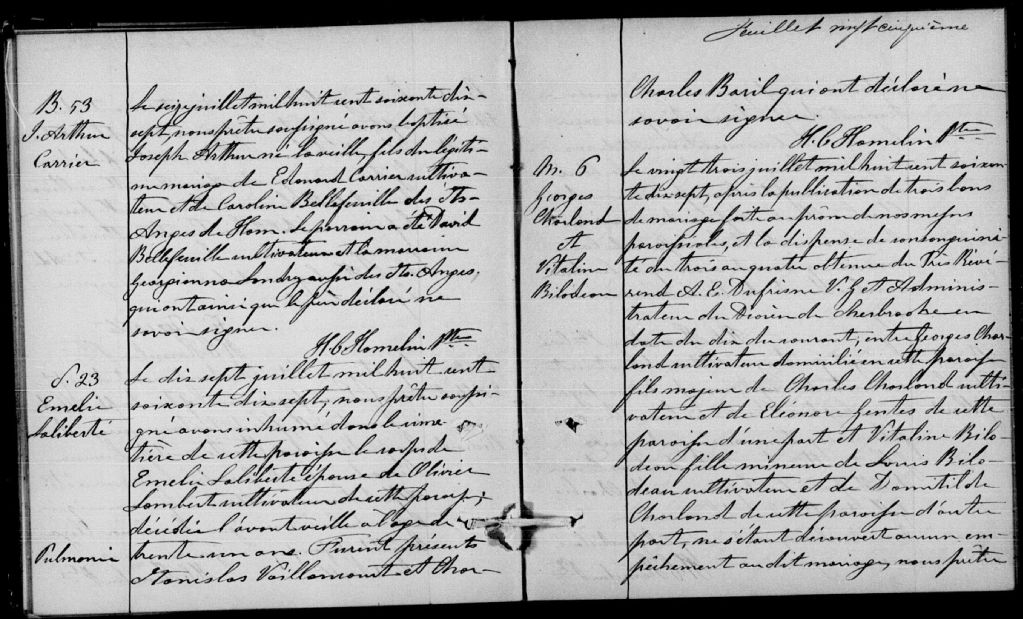 B. 53
J. Arthur
Carrier
Le seize juillet mil huit cent soixante dix-
sept, nous prêtre soussigné avons baptisé
Joseph Arthur né la veille, fils du légiti-
me mariage de Edouard Carrier cultiva-
teur et de Caroline Bellefeuille des Sts
Anges de Ham. Le parrain a été David
Bellefeuille cultivateur et la marraine
Georgianna Landry aussi des Sts. Anges,
qui ont ainsi que le père déclaré ne
savoir signer.
H C Hamelin Ptre
S. 23
Emelie
Laliberté
Pulmonie
Le dix sept juillet mil huit cent
soixante dix sept, nous prêtre soussi-
gné avons inhumé dans le cime-
tière de cette paroisse le corps de
Emelie Laliberté épouse de Olivier
Lambert cultivateur de cette paroisse,
décédée l'avant veille à l'age de
trente un ans. Furent présents
Stanislas Vaillancourt et Char-
Feuillet vingt cinquième
Charles Baril qui ont déclaré ne
savoir signer.
H. C Hamelin Ptre
M. 6
Georges
Charland
et
Vitaline
Bilodeau
Le vingt trois juillet mil huit cent soixan-
te dix sept, après la publication de trois bans
de mariage faite au prône de nos messes
paroissiales, et la dispense de consanguini-
té du trois au quatre obtenue du Très Révé-
rend A. E. Dufresne V. G. et Adminis-
trateur du Diocèse de Sherbrooke en
date du dix du courant, entre Georges Char-
land cultivateur domicilié en cette paroisse
fils majeur de Charles Charland culti-
vateur et de Eléonore Gentes de cette
paroisse d'une part et Vitaline Bilo-
deau fille mineure de Louis Bilo-
deau cultivateur et de Domitilde
Charland de cette paroisse d'autre
part, ne s'étant découvert aucun em-
pêchement au dit mariage, nous prêtre